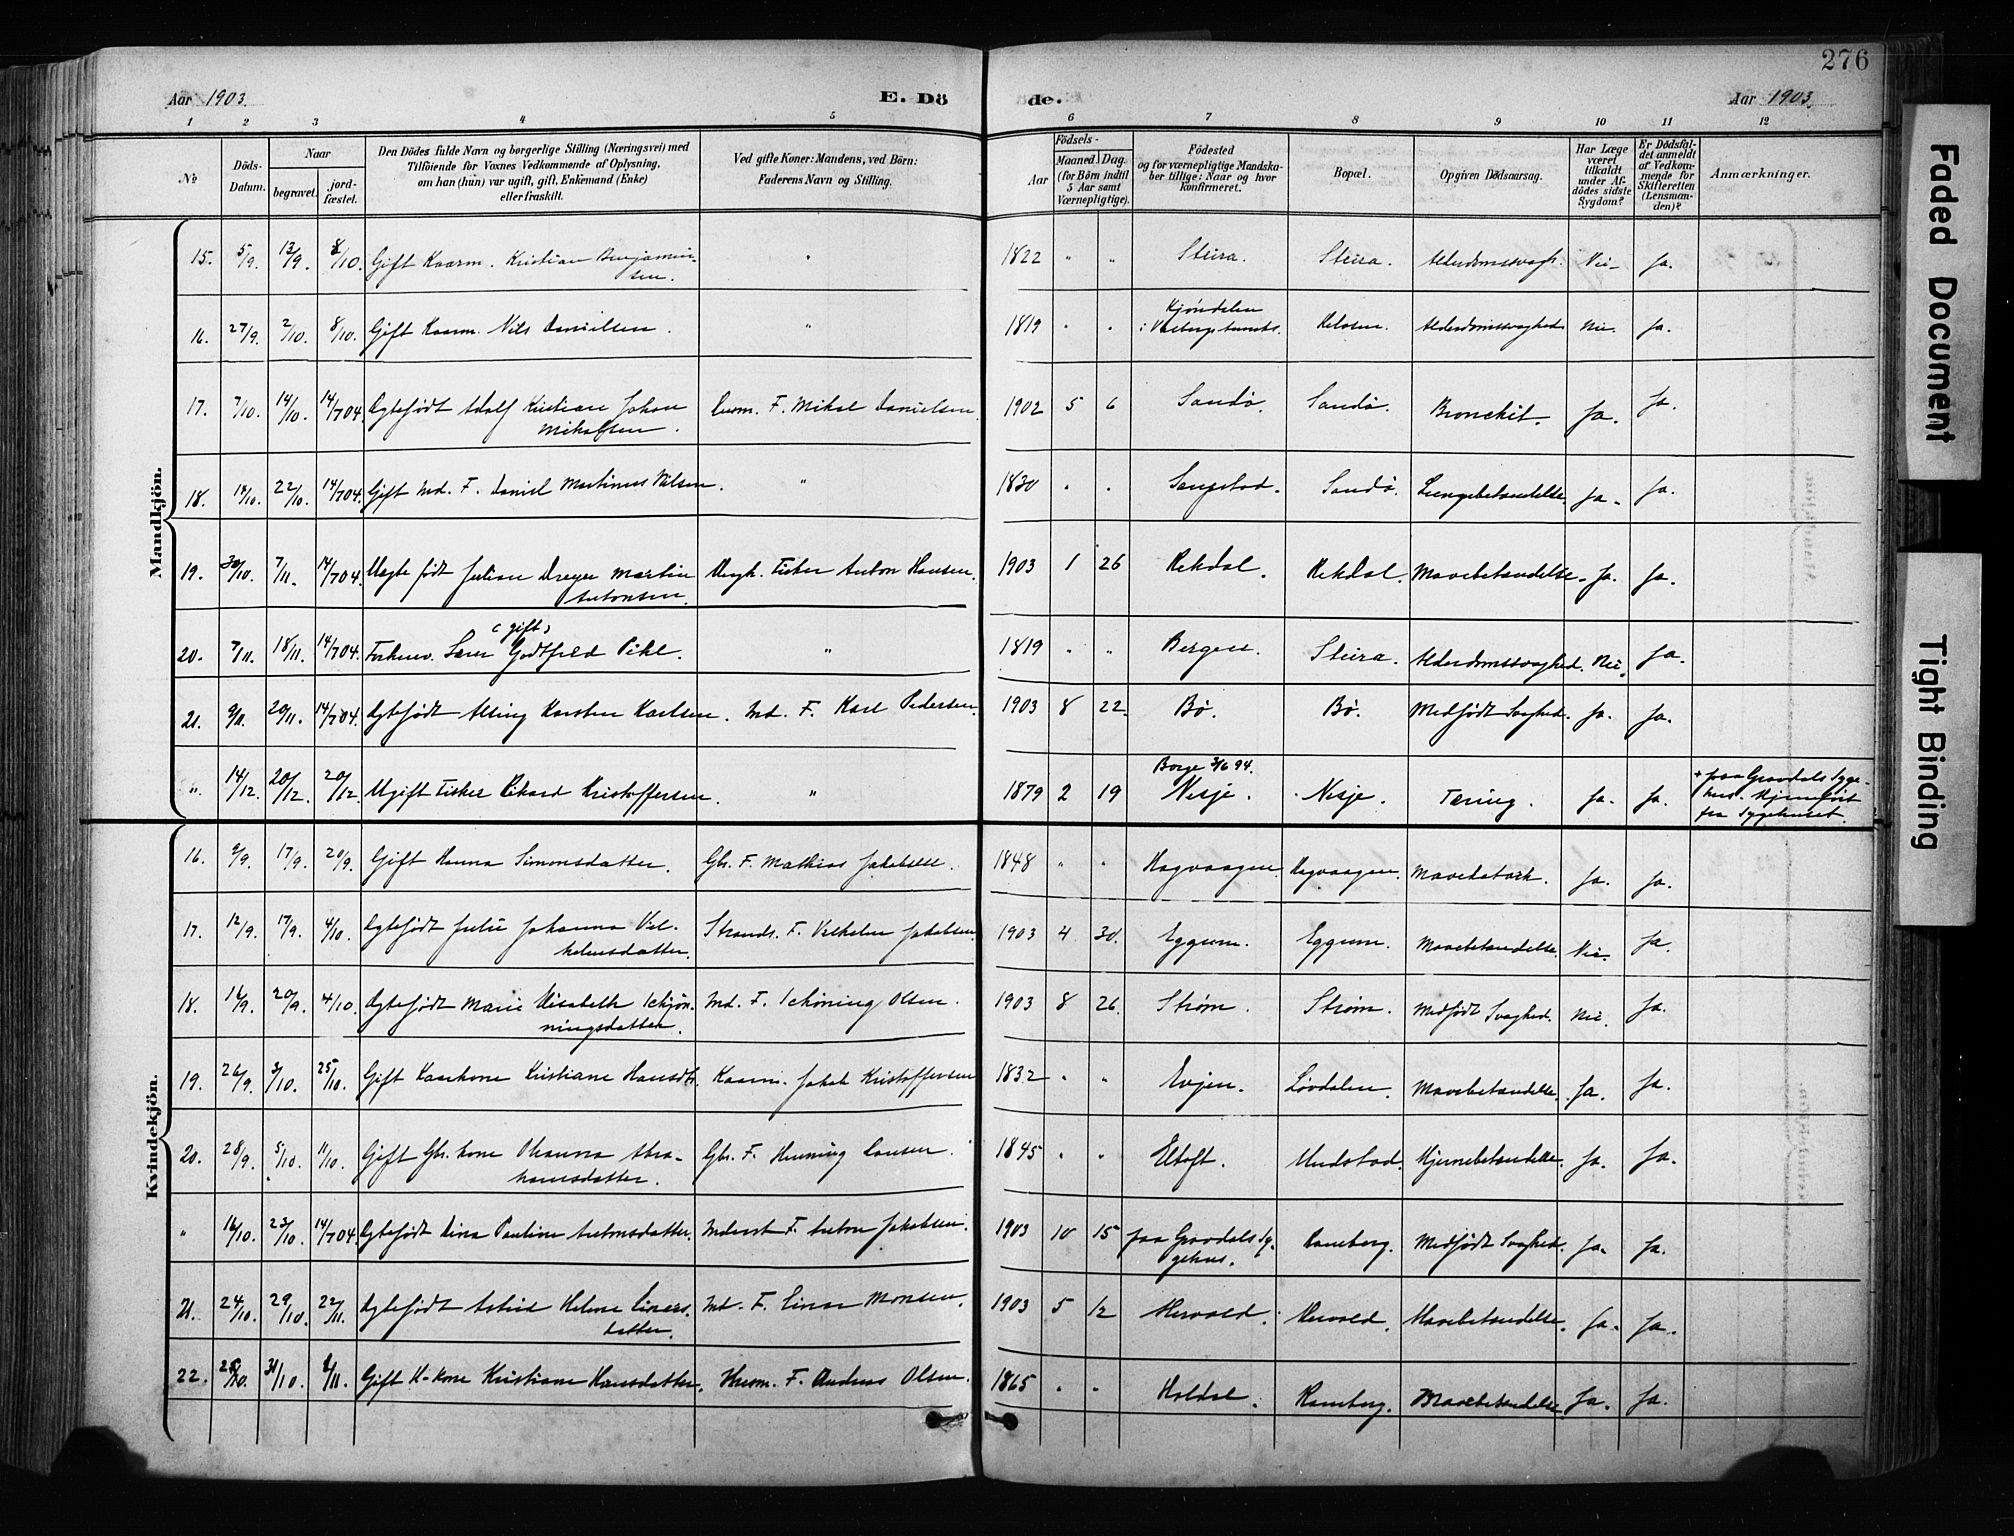 276
Aar 1903.
E. Dö
de.
Aar 1903.
1 2 3 4 5 6 7 8 9 10 11 12
No
Döds-
Datum.
Naar
begravet.
jord-
fæstet.
Den Dödes fulde Navn og borgerlige Stilling (Næringsvei) med
Tilföiende for Voxnes Vedkommende af Oplysning,
om han (hun) var ugift, gift, Enkemand (Enke)
eller fraskilt.
Ved gifte Koner: Mandens, ved Börn:
Faderens Navn og Stilling.
Födsels-
Aar
Maaned.
Dag.
(for Börn indtil
5 Aar samt
Værnepligtige).
Födested
og for værnepligtige Mandska-
ber tillige: Naar og hvor
konfirmeret.
Bopæl.
Opgiven Dödsaarsag.
Har Læge
været
tilkaldt
under Af-
dödes sidste
Sygdom?
Er Dödsfal-
det anmeldt
af Vedkom-
mende for
Skifteretten
(Lensman-
den)?
Anmærkninger.
Mandkjön.
15. 5/9. 13/9. 8/10. Gift Kaarm. Kristian Benjamin-
sen. " 1822 " " Steira. Steira. Alderdomssvagh. Nei. Ja.
16. 27/9. 2/10. 8/10. Gift Kaarm. Nils Danielsen. " 1819 " " Kjøndalen
Alderdomssvaghed Nei. Ja.
17. 7/10. 14/10. 14/7 04. Ægtefødt Adolf Kristian Johan
Mikalsen. F. Mikal Danielsen. 1902 5 6 Sandø. Sandø. Bronchit. Ja. Ja.
18. 14/10. 22/10. 14/7 04. Gift Ind. F. Daniel Martinus Nilsen. " 1830 " " Saupstad. Sandø. Lungebetændelse. Ja. Ja.
19. 30/10. 7/11. 14/7 04. Uægte født Julian Dreyer Martin
Antonsen. Ungk. Fisker Anton Hansen. 1903 1 26 Rekdal. Rekdal. Mavebetændelse. Ja. Ja.
(gift)
20. 7/11. 18/11. 14/7 04. Godtfred Pihl. " 1819 " " Bergen. Steira. Alderdomssvaghed. Nei. Ja.
21. 9/11. 20/11. 14/7 04. Ægtefødt Karsten Karlsen. Ind. F. Karl Pedersen. 1903 8 22. Bø. Bø. Medfødt Svaghed. Ja. Ja.
Borge 3/6 94.
" 14/12. 20/12. 20/12. Ugift Fisker Rikard Kristoffersen. " 1879 2 19 Nesje. Nesje. Tæring. Ja. Ja. + paa Gravdals Syge-
hus. Hjemført
fra Sygehuset.
Kvindekjön.
16. 9/9. 17/9. 20/9. Gift Hanna Simonsdatter. Gbr. F. Mathias Jakobsen. 1848 " " Hagvaagen. Hagvaagen. Mavekatarh. Ja. Ja.
17. 12/9. 17/9. 4/10. Ægtefødt Julie Johanna Vil-
helmsdatter. Strands. F. Vilhelm Jakobsen. 1903 4 30. Eggum. Eggum. Mavebetændelse. Nei. Ja.
18. 16/9. 20/9. 4/10. Ægtefødt Marie Elisabeth Schjøn-
ningsdatter. Ind. F. Schøning Olsen. 1903 8 26. Strøm. Strøm. Medfødt Svaghed. Nei. Ja.
19. 26/9. 3/10. 25/10. Gift Kaarkone Kristiane Hansdtr. Kaarm. Jakob Kristoffersen 1832 " " Evjen. Løvdalen. Mavebetændelse. Ja. Ja.
20. 28/9. 5/10. 11/10. Gift Gbr. kone Olianna Abra-
hamsdatter. Gbr. F. Henning Larsen. 1845 " " Eltoft. Unstad. Hjernebetændelse. Ja. Ja.
" 16/10. 23/10. 14/7 04. Ægtefødt Lina Pauline Antonsdatter. Inderst F. Anton Jakobsen. 1903 10 15 paa Gravdals Sy-
gehus. Ramberg. Medfødt Svaghed. Ja. Ja.
21. 24/10. 29/10. 22/11. Ægtefødt Astrid Helene Einars-
datter. Ind. F. Einar Monsen. 1903 5 1/2 Hervold. Hervold. Mavebetændelse. Ja. Ja.
22. 31/10. Gift H-kone Kristiane Hansdatter. Husm. F. Andreas Olsen. 1865 " " Holdal. Ramberg. Mavebetændelse. Ja. Ja.
Faded Document
Tight Binding